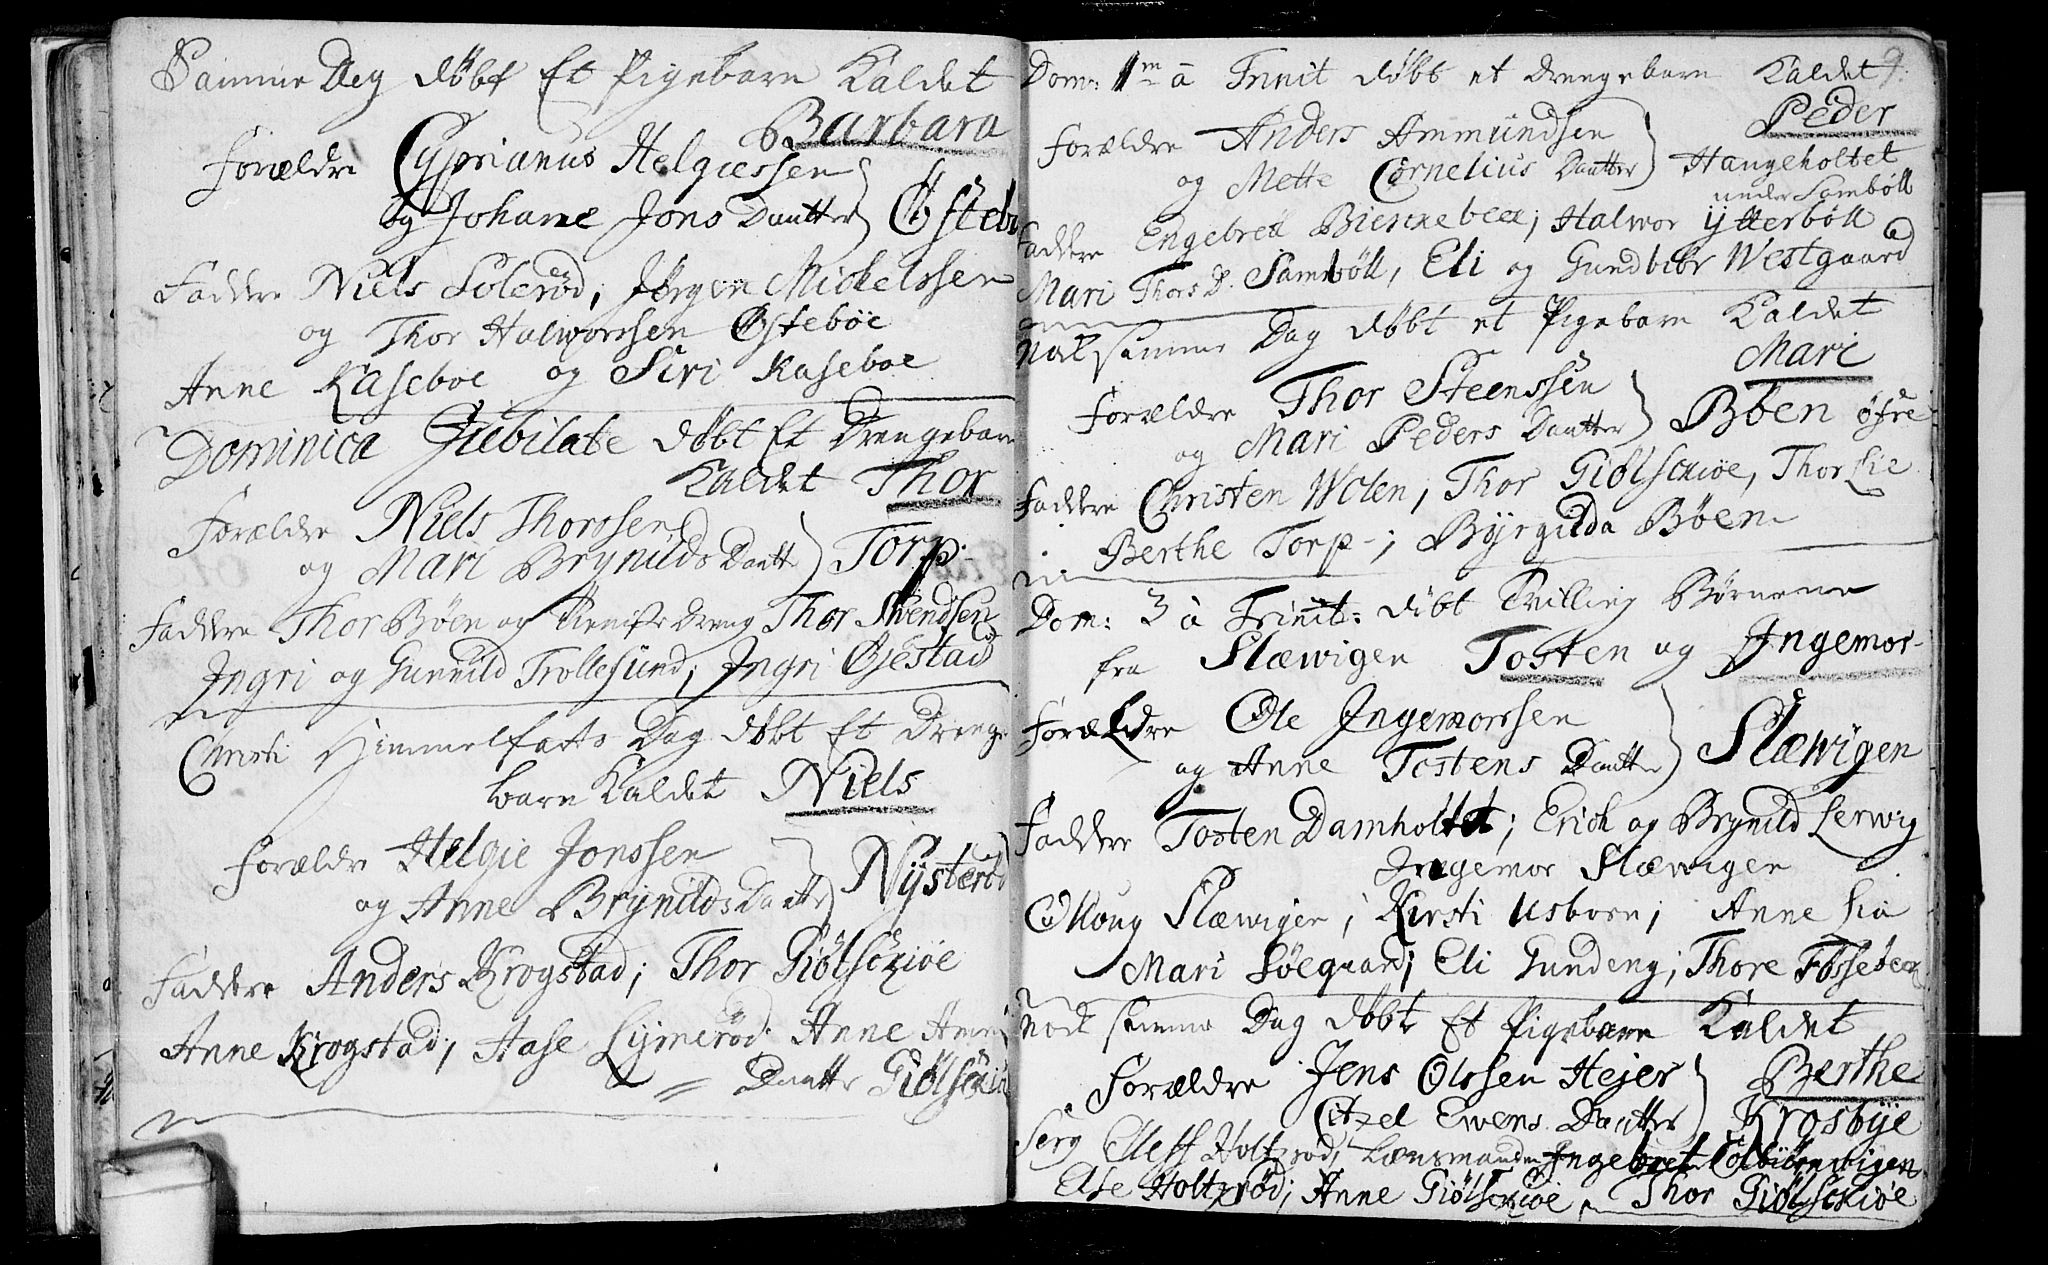 Samme Dag døbt Et Pigebarn Kaldet
Barbara
Forældre Cyprianus Helgiessen
og Johane Jons Daatter Østebø
Faddere Niels Solerød, Jørgen Mickelssen
og Thor Halworssen Østebøe
Anne Kaseboe og Siri Kaseboe
Dominica Jubilate døbt Et Drengebarn
Kaldet Thor
Forældre Niels Thorssen
og Mari Brynilds Daatter Torp
Faddere Thor Bøen og Dreng Thor Swendsen
Ingri og Gunnild Trollesund; Ingri Øjestad
Christi Himmelfarts Dag døbt Et Drenge
barn Kaldet Niels
Forældre Helgie Jonssen
og Anne Brynilds Daatter Nysterød
Faddere Anders Krogstad; Thor Giølsckiøe
Anne Krogstad; Aase Lymerød Anne
Daatter Giølsckiøe
9.
Dom: 1m â Trinit døbt et Drengebarn Kaldet
Peder
Forældre Anders Ammundsen
og Mette Cornelius Daatter Hangeholtet
under Sambøll
Faddere Engebret Bierckebeck; Halwor Ytterbøll
Mari Thors D. Sambøll, Eli og Gundbør Westgaard
Nock samme Dag døbt et Pigebarn Kaldet
Mari
Forældre Thor Steenssen
og Mari Peders Daatter Bøen øfre
Faddere Christen Wolen, Thor Giølsckiøe, Thor Lie
Berthe Torp; Byrgilda Bøen
Dom: 3 â Trinit: døbt Tvilling Børnene
fra Slæwigen Tosten og Ingemor
Forældre Ole Ingemorssen
og Anne Tostens Daatter Slæwigen
Faddere Tosten Damholtet; Erich og Brynild Lerwig
Ingemor Slæwigen
Slæwigen; Kirsti Usborn; Anne Lia
Mari Søegaard; Eli Gundeng; Thore Fossebeck
Nock samme Dag døbt Et Pigebarn Kaldet
Berthe
Forældre Jens Olssen Hejer
Citzel Ewens Daatter Krosbye
Serg Oleff Holtzrød, Lænsmanden Ingebret
Else Holtzrød; Anne Giølsckiøe, Thor Giølsckiøe